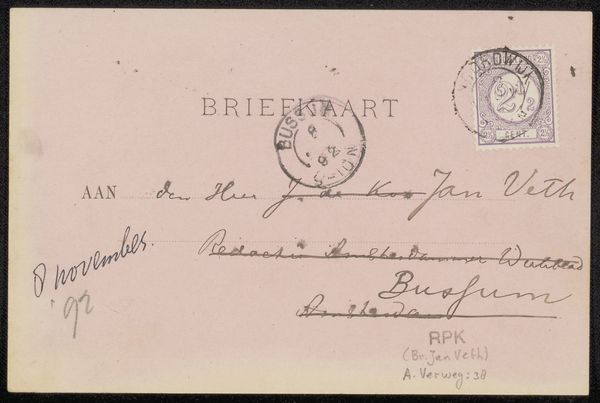 BRIEFKAART
NOORDWIJK
2½
CENT
BUSSUM
8
NOV
AAN den Heer J. de Koo Jan Veth
Redactie Amsterdammer Weekblad
Bussum
Amsterdam
8 november.
'92
RPK
(Br. Jan Veth)
A. Verweg: 38